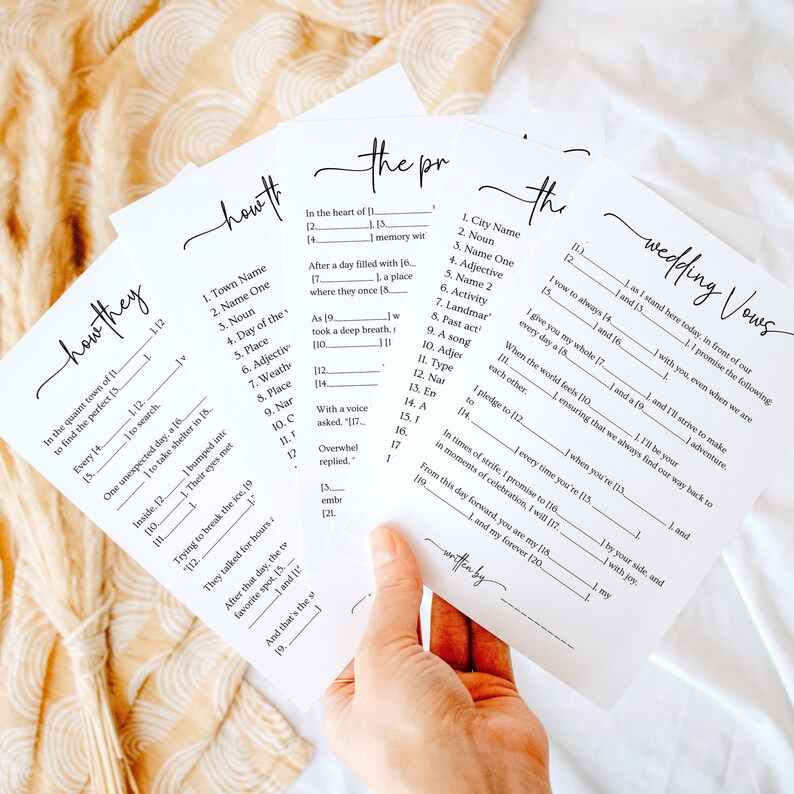 how they
In the quaint town of [1________], [2
to find the perfect [3________].
Every [4________], [2.
[5. ________] to search.
One unexpected day, a [6.
________] to take shelter in [8.
Inside, [2________] bumped into
[10________]. Their eyes met
[11________].
Trying to break the ice, [9
"[12. ________]."
They talked for hours
After that day, the
favorite spot, [5.
________] and [1
And that's the s
[9. ________]
how th
1. Town Name
2. Name One
3. Noun
4. Day of the
5. Place
6. Adjective
7. Weathe
8. Place
9. Nam
10.
11.
12.
13
the pr
In the heart of [1________]
[2________], [3.________
[4________] memory wit
After a day filled with [6.
[7.________], a place
where they once [8.
As [9________] w
took a deep breath,
[10.________] [1
[12.________
[14.________
With a voice
asked, "[16.
Overwhel
replied,
[3.
emb
[21.
th
1. City Name
2. Noun
3. Name One
4. Adjective
5. Name 2
6. Activity
7. Landmar
8. Past acti
9. A song
10. Adje
11. Type
12. Nam
13. Em
14. A
15.
16.
17
wedding Vows
[1.)________], as I stand here today, in front of our
[2________] and [3________], I promise the following:
I vow to always [4________] with you, even when we are
[5________] and [6________].
I give you my whole [7________], and I'll strive to make
every day a [8________] and a [9________] adventure.
When the world feels [10________], I'll be your
[11________], ensuring that we always find our way back to
each other.
I pledge to [12________] when you're [13________], and
[14.________] every time you're [15.________].
In times of strife, I promise to [16________] by your side, and
in moments of celebration, I will [17________] with joy.
From this day forward, you are my [18________], my
[19________], and my forever [20________].
written by ________